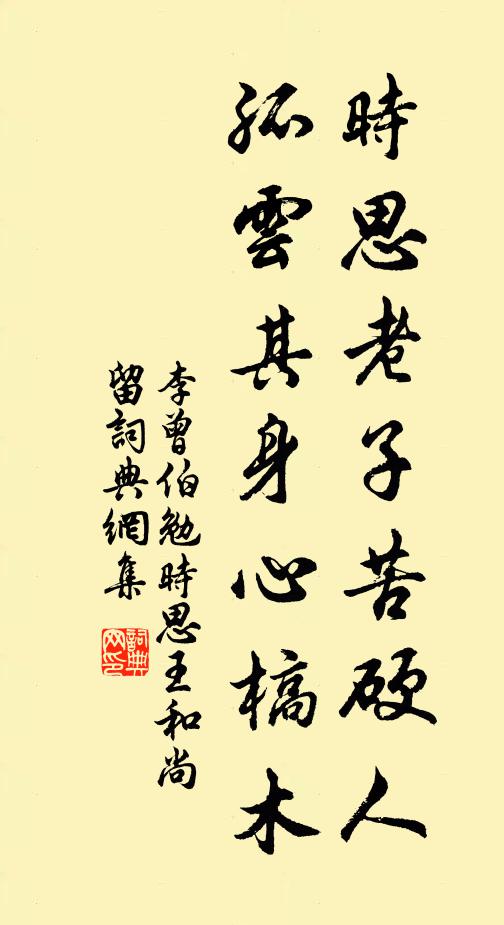 時思老子苦硬人
孤雲其身心槁木
李曾伯勉時思王和尚
留詞典網集
詞典
网印